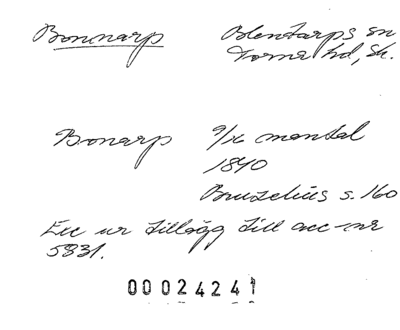 Bonnarp Olentarps sn
Torna hd, Sk.
Bonarp 9/16 mantal
1840
Bruzelius s. 160
Exc ur tillägg till acc-nr
5831.
00024241